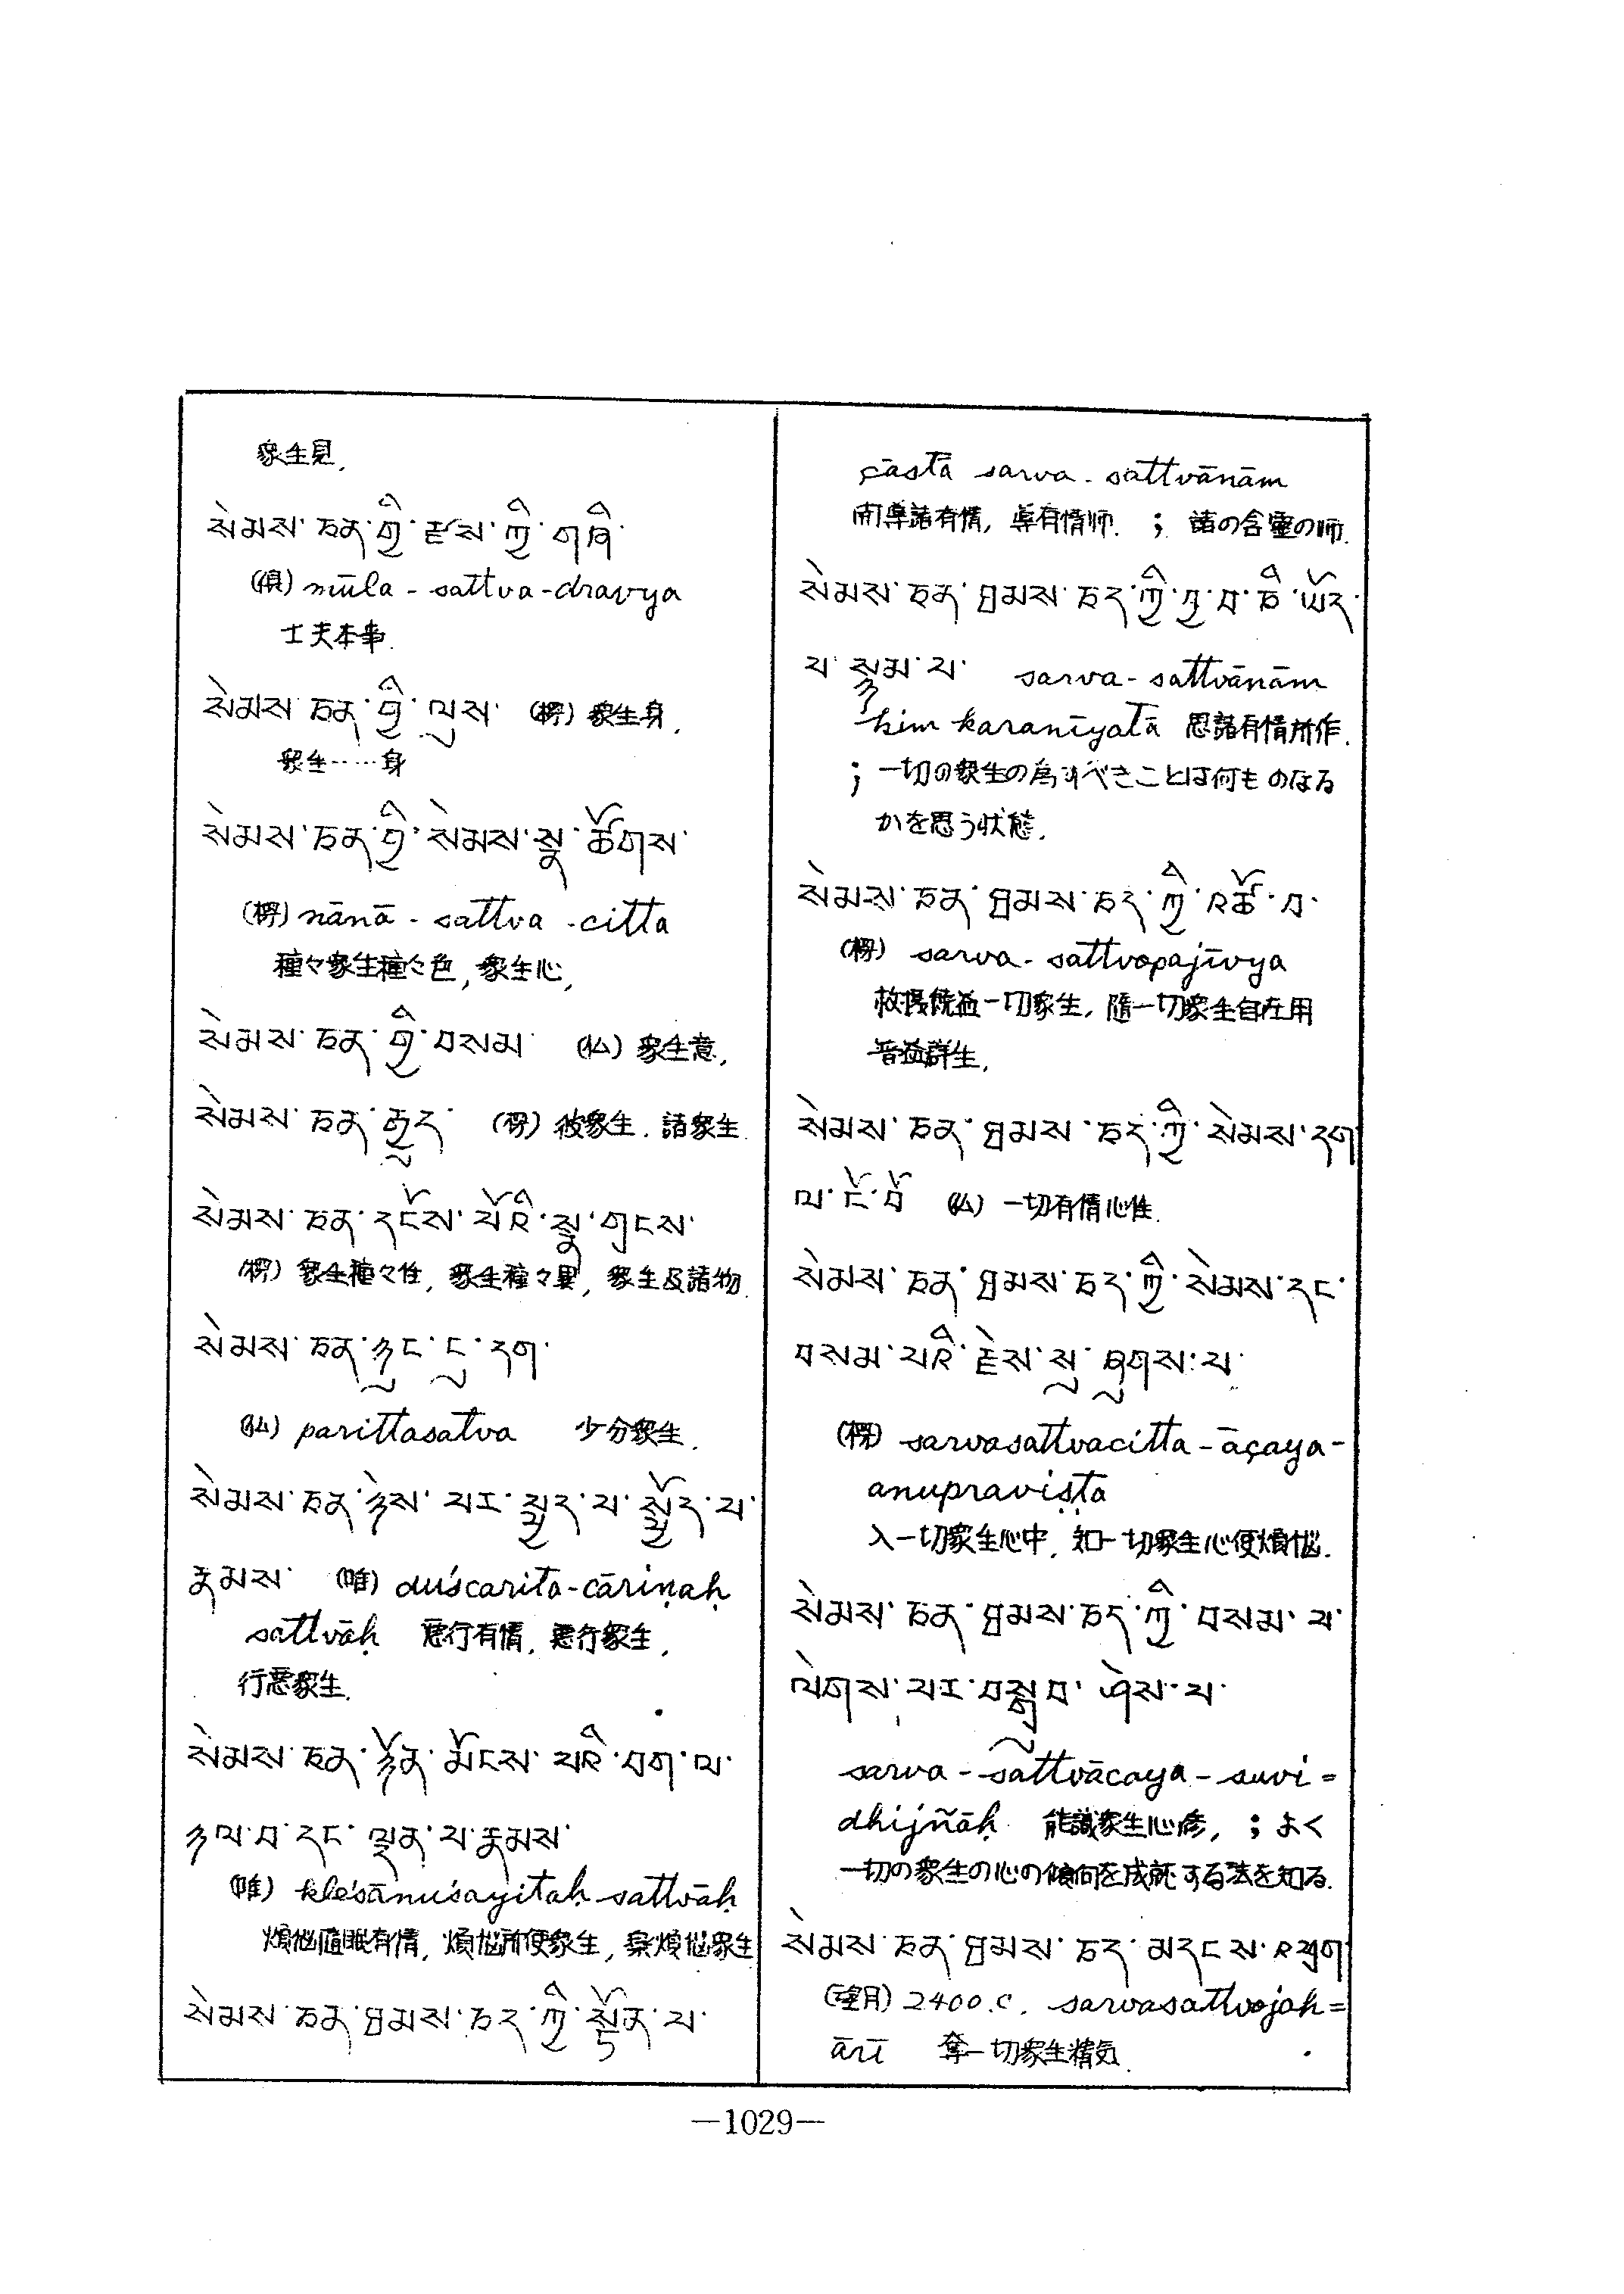 衆生見,
སེམས་ཅན་གྱི་རྫས་ཀྱི་གཞི་
(倶) mūla - sattva - dravya
士夫本事.
སེམས་ཅན་གྱི་ལུས་ (楞) 衆生身,
衆生……身
སེམས་ཅན་གྱི་སེམས་སྣ་ཚོགས་
(楞) nānā - sattva - citta
種々衆生種々色, 衆生心,
སེམས་ཅན་གྱི་བསམ་ (仏) 衆生意,
སེམས་ཅན་རྒྱུད་ (楞) 彼衆生. 諸衆生.
སེམས་ཅན་དངོས་པོའི་སྣ་གྲངས་
(楞) 衆生種々性, 衆生種々異, 衆生及諸物.
སེམས་ཅན་ཉུང་ངུ་དག་
(仏) parittasatva 少分衆生.
སེམས་ཅན་ཉེས་པར་སྤྱད་པ་སྤྱོད་པ་
རྣམས་ (唯) duścarita-cāriṇaḥ
sattvāḥ 悪行有情, 悪行衆生,
行悪衆生.
སེམས་ཅན་ཉོན་མོངས་པའི་བག་ལ་
ཉལ་བ་དང་ལྡན་པ་རྣམས་
(唯) kleśānuśayitaḥ sattvāḥ
煩悩随眠有情, 煩悩所使衆生, 察煩悩衆生
སེམས་ཅན་ཐམས་ཅད་ཀྱི་སྟོན་པ་
çāstā sarva - sattvānām
開導諸有情, 導有情师. ; 諸の含霊の师.
སེམས་ཅན་ཐམས་ཅད་ཀྱི་ཀྱ་བ་ཅི་ཡོད་
པ་སྙམ་པ་ sarva - sattvānām
kim karanīyatā 思諸有情所作.
; 一切の衆生の為すべきことは何ものなる
かを思う状態.
སེམས་ཅན་ཐམས་ཅད་ཀྱི་འཚོ་བ་
(楞) sarva - sattvopajīvya
救摂饒益一切衆生, 随一切衆生自在用
普益群生,
སེམས་ཅན་ཐམས་ཅད་ཀྱི་སེམས་དག
ལ་ངོ་བོ (仏) 一切有情心性.
སེམས་ཅན་ཐམས་ཅད་ཀྱི་སེམས་དང་
བསམ་པའི་རྗེས་སུ་ཞུགས་པ་
(楞) sarvasattvacitta - āçaya -
anupraviṣṭa
入一切衆生心中, 知一切衆生心使煩悩.
སེམས་ཅན་ཐམས་ཅད་ཀྱི་བསམ་པ་
ལེགས་པར་བསྒྲུབ་ཤེས་པ་
sarva - sattvācaya - suvi =
dhijñāḥ 能識衆生心修, ; よく
一切の衆生の心の傾向を成就する法を知る.
སེམས་ཅན་ཐམས་ཅད་མདངས་འཕྲོག
(望月) 2400.c. sarvasattvojah =
āri 奪一切衆生精気.
—1029—